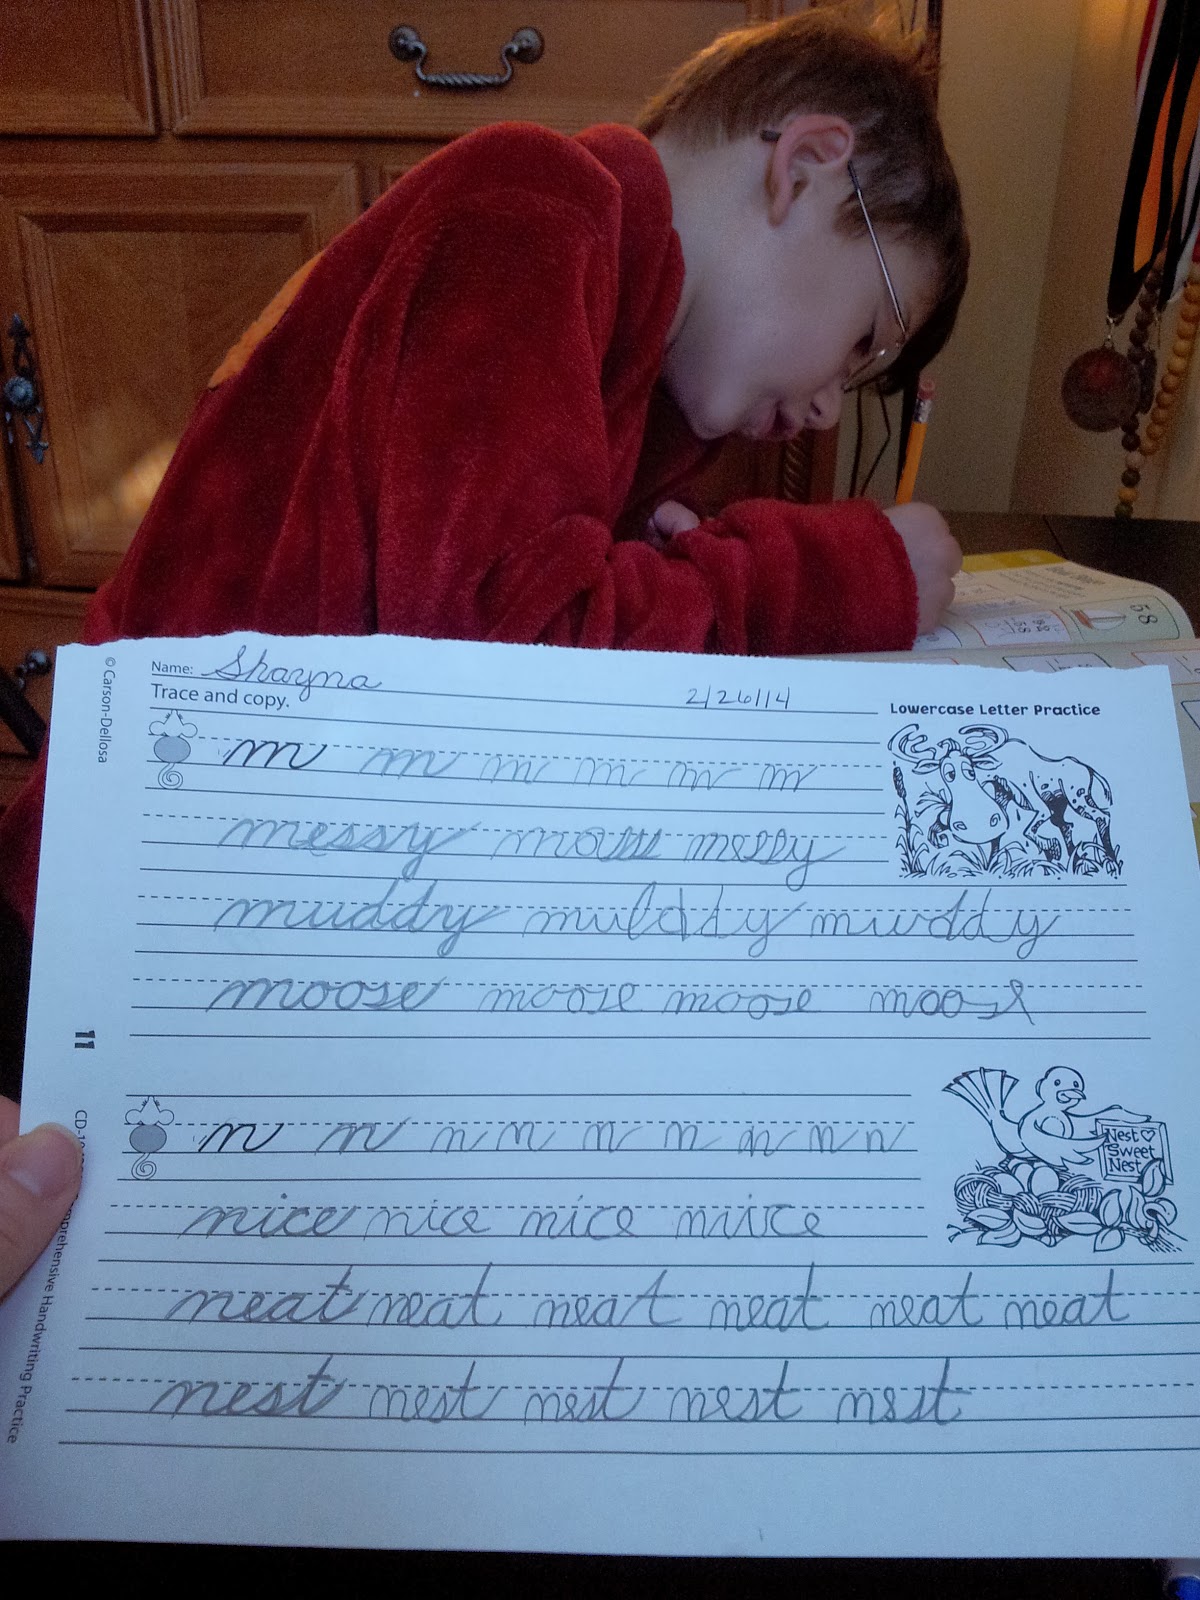 Name: Shayna
Trace and copy.
2/26/14
Lowercase Letter Practice
© Carson-Dellosa
m m m m m m
messy messy
muddy mulddy muddy
moose moose moose moose
11
n n n n n n n n n
nice nice nice
Nest ♡
Sweet
Nest
neat neat neat neat neat neat
nest nest nest nest nest
Handwriting Practice
58